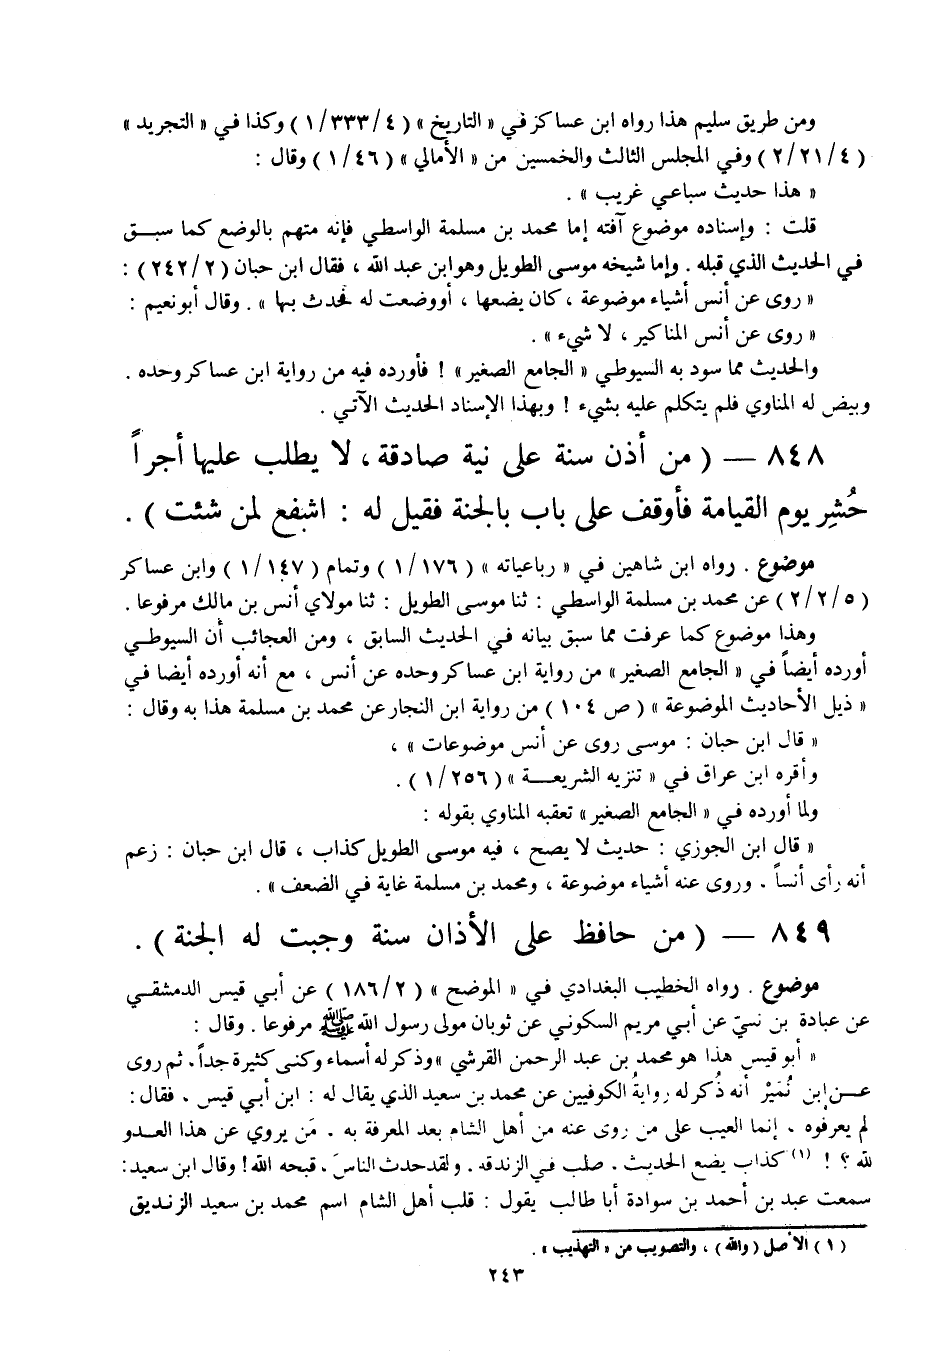 ومن طريق سليم هذا رواه ابن عساكر في « التاريخ » ( ٤/ ٣٣٣/ ١ ) وكذا في « التجريد »
( ٤/ ٢١/ ٢ ) وفي المجلس الثالث والخمسين من « الأمالي » ( ٤٦/ ١ ) وقال :
« هذا حديث سباعي غريب » .
قلت : وإسناده موضوع آفته إما محمد بن مسلمة الواسطي فإنه متهم بالوضع كما سبق
في الحديث الذي قبله . وإما شيخه موسى الطويل وهو ابن عبد الله ، فقال ابن حبان ( ٢/ ٢٤٢ ) :
« روى عن أنس أشياء موضوعة ، كان يضعها ، أو وضعت له فحدث بها » . وقال أبو نعيم :
« روى عن أنس المناكير ، لا شيء » .
والحديث مما سود به السيوطي « الجامع الصغير » ! فأورده فيه من رواية ابن عساكر وحده .
وبيض له المناوي فلم يتكلم عليه بشيء ! وبهذا الإسناد الحديث الآتي .
٨٤٨ — ( من أذن سنة على نية صادقة ، لا يطلب عليها أجراً
حُشِر يوم القيامة فأوقف على باب بالجنة فقيل له : اشفع لمن شئت ) .
موضوع . رواه ابن شاهين في « رباعياته » ( ١٧٦/ ١ ) وتمام ( ١٤٧/ ١ ) وابن عساكر
( ٥/ ٢/ ٢ ) عن محمد بن مسلمة الواسطي : ثنا موسى الطويل : ثنا مولاي أنس بن مالك مرفوعا .
وهذا موضوع كما عرفت مما سبق بيانه في الحديث السابق ، ومن العجائب أن السيوطي
أورده أيضاً في « الجامع الصغير » من رواية ابن عساكر وحده عن أنس ، مع أنه أورده أيضا في
« ذيل الأحاديث الموضوعة » ( ص ١٠٤ ) من رواية ابن النجار عن محمد بن مسلمة هذا به وقال :
« قال ابن حبان : موسى روى عن أنس موضوعات » ،
وأقره ابن عراق في « تنزيه الشريعة » ( ٢٥٦/ ١ ) .
ولما أورده في « الجامع الصغير » تعقبه المناوي بقوله :
« قال ابن الجوزي : حديث لا يصح ، فيه موسى الطويل كذاب ، قال ابن حبان : زعم
أنه رأى أنساً . وروى عنه أشياء موضوعة ، ومحمد بن مسلمة غاية في الضعف » .
٨٤٩ — ( من حافظ على الأذان سنة وجبت له الجنة ) .
موضوع . رواه الخطيب البغدادي في « الموضح » ( ٢/ ١٨٦ ) عن أبي قيس الدمشقي
عن عبادة بن نسيّ عن أبي مريم السكوني عن ثوبان مولى رسول الله ﷺ مرفوعا . وقال :
« أبو قيس هذا هو محمد بن عبد الرحمن القرشي » وذكر له أسماء وكنى كثيرة جداً . ثم روى
عن ابن نُمَيْرْ أنه ذُكر له روايةُ الكوفيين عن محمد بن سعيد الذي يقال له : ابن أبي قيس . فقال :
لم يعرفوه . إنما العيب على من روى عنه من أهل الشام بعد المعرفة به . مَن يروي عن هذا العدو
لله ؟ ! (١) كذاب يضع الحديث . صلب في الزندقه . ولقد حدث الناسَ . قبحه الله ! وقال ابن سعيد :
سمعت عبد بن أحمد بن سوادة أبا طالب يقول : قلب أهل الشام اسم محمد بن سعيد الزنديق
( ١ ) الأصل ( والله ) ، والتصويب من « التهذيب » .
٢٤٣